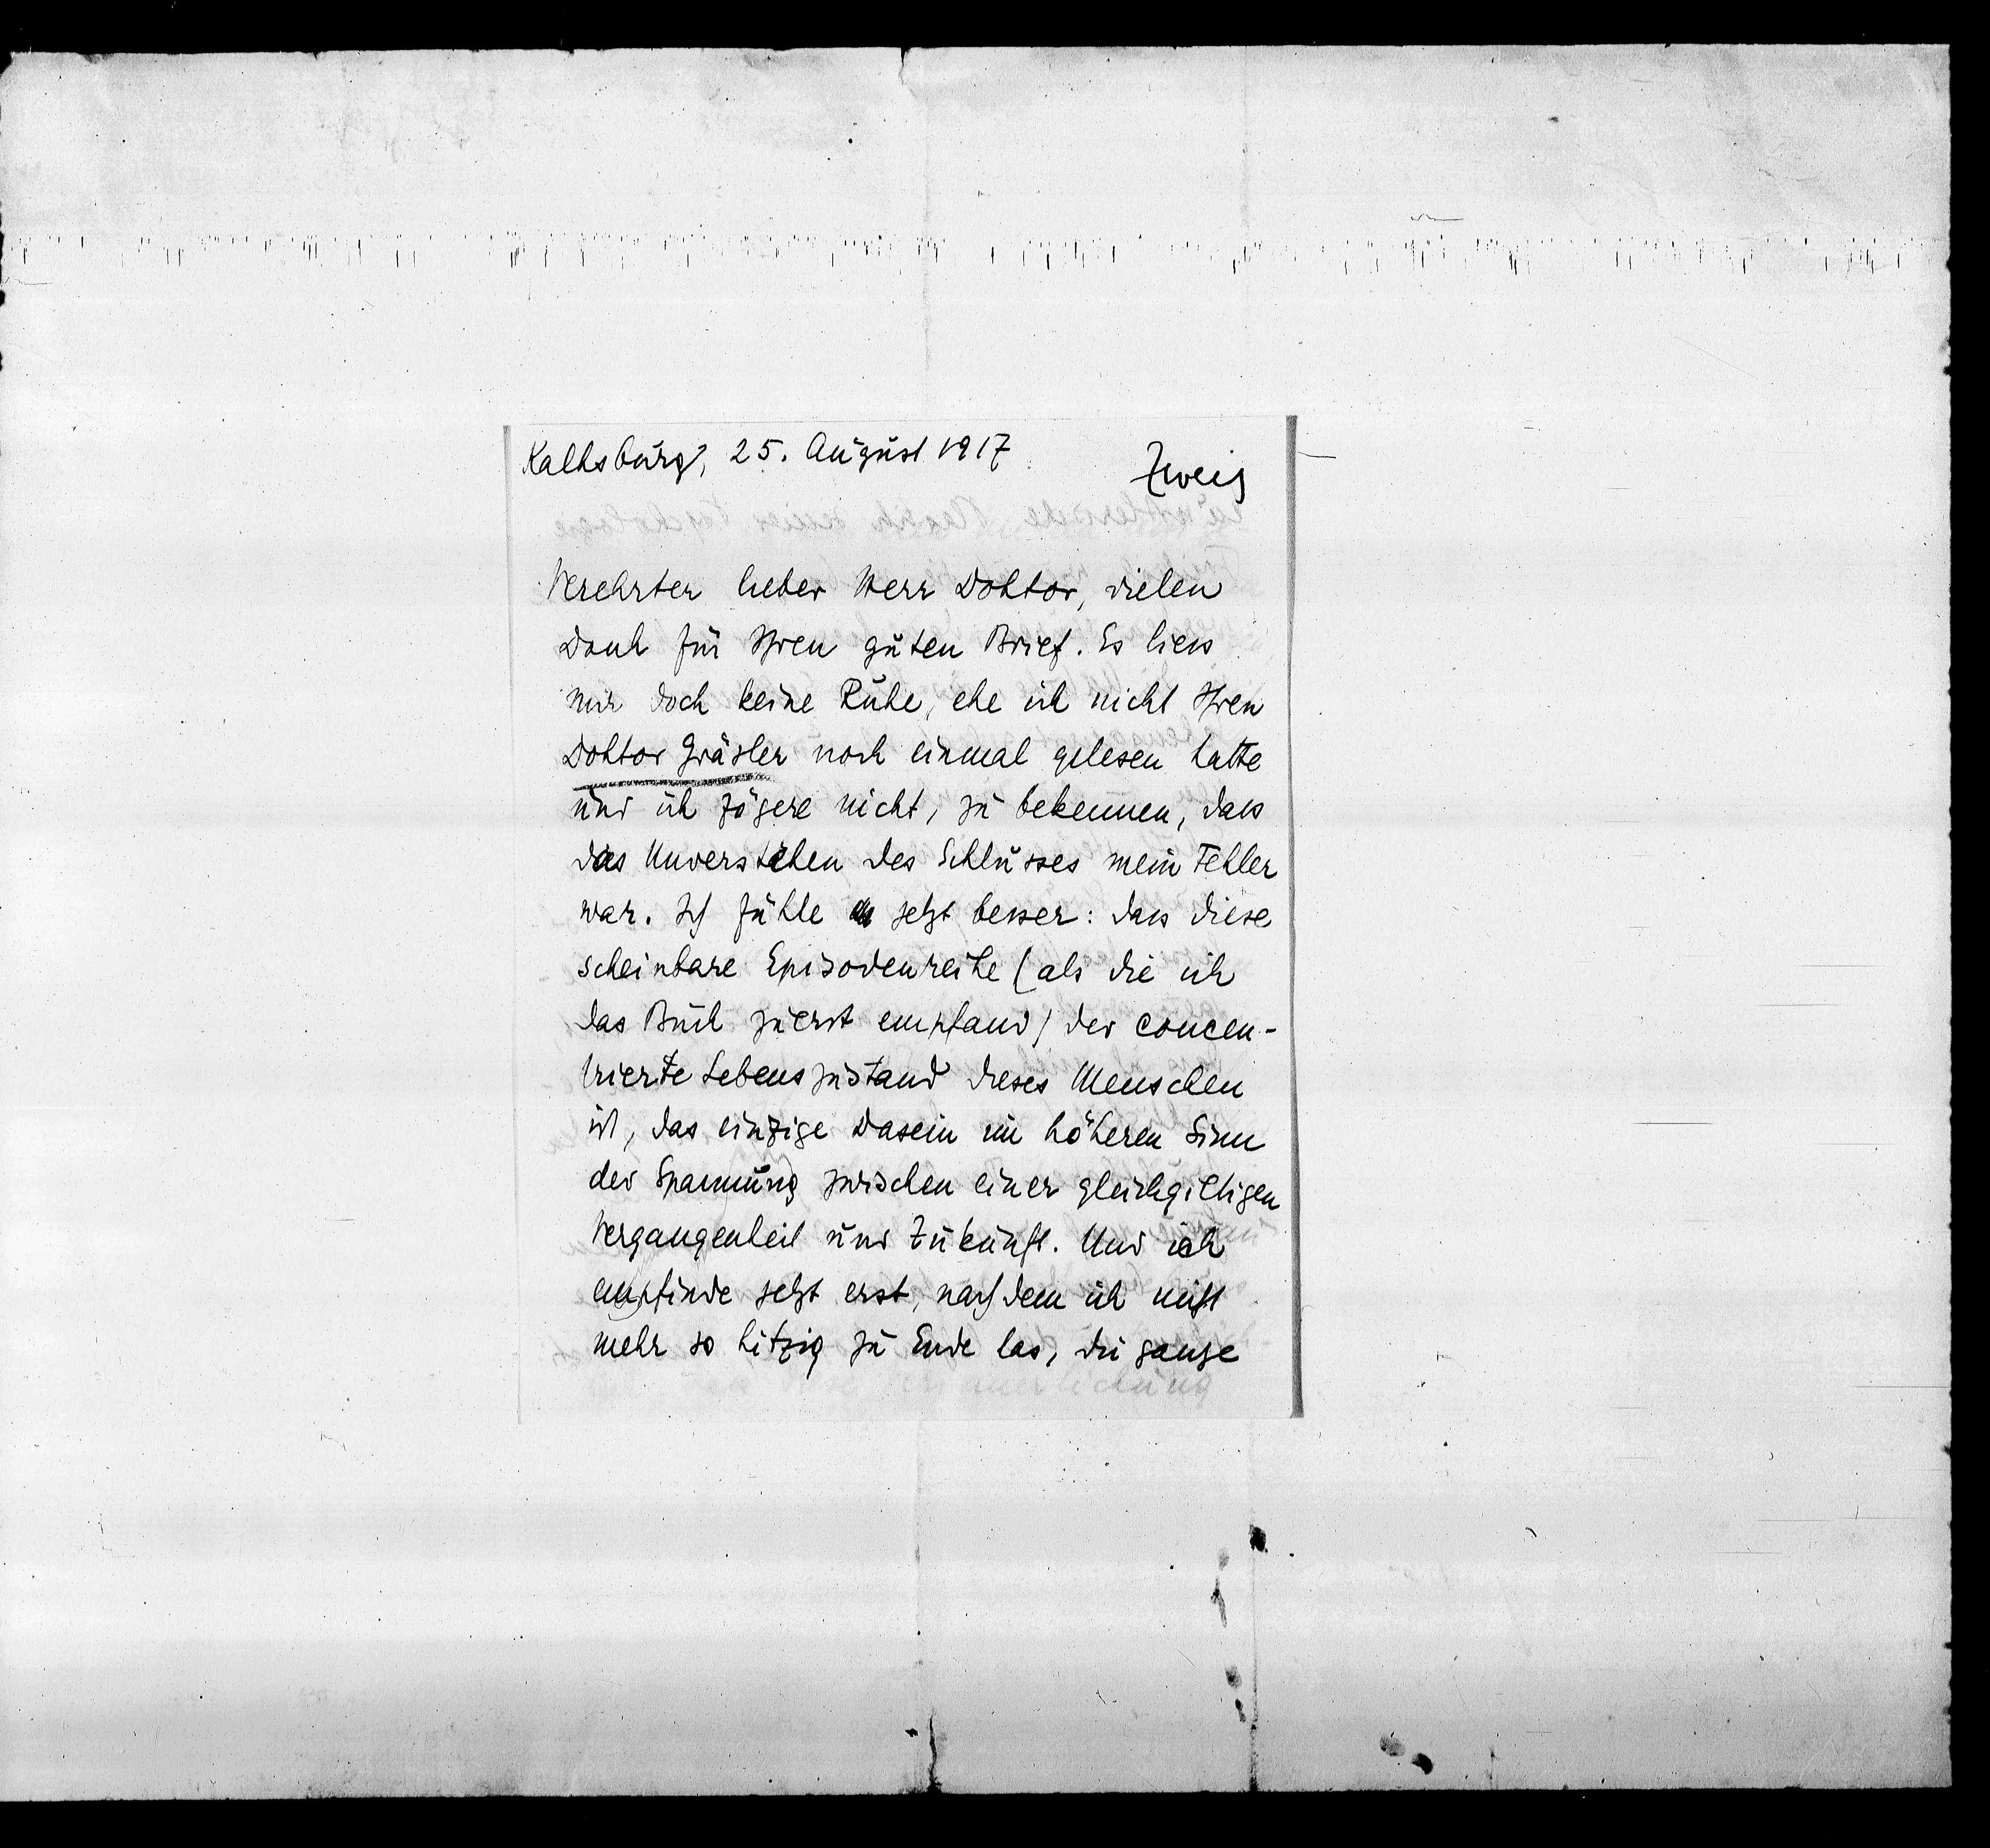 Kalksburg, 25. August 1917
Zweig
Verehrter lieber Herr Doktor, vielen
Dank für Ihren guten Brief. Es liess
mir doch keine Ruhe, ehe ich nicht Ihren
Doktor Gräsler noch einmal gelesen hatte
und ich zögere nicht, zu bekennen, dass
das Unverstehen des Schlusses mein Fehler
war. Ich fühle jetzt besser: dass diese
scheinbare Episodenreihe (als die ich
das Buch zuerst empfand) der concen-
trierte Lebenszustand dieses Menschen
ist, das einzige Dasein im höheren Sinn
der Spannung zwischen einer gleichgiltigen
Vergangenheit und Zukunft. Und ich
empfinde jetzt erst, nachdem ich nicht
mehr so hitzig zu Ende las, die ganze